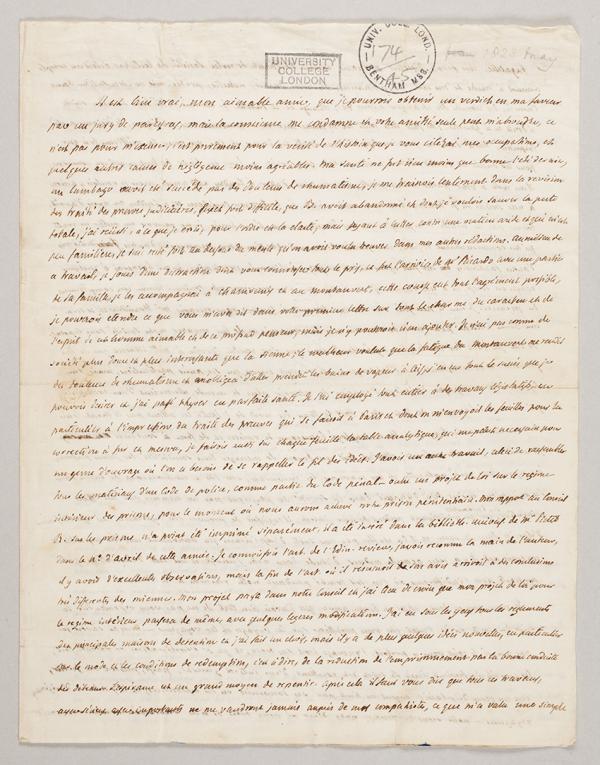 UNIVERSITY COLLEGE LONDON
UNIV. COLL. LOND. BENTHAM MSS.
174
1823 may
il est bien vrai, mon aimable amie, que je pourrois obtenir un verdict en ma faveur
par un jury de mais la conscience me condamne et votre amitié seule peut m'absoudre, ce
n'est pas pour m'excuser, c'est purement pour la vérité de l'histoire que je vous citerai mes occupations, et
quelques autres causes de négligence moins agréables. Ma santé ne fut rien moins que bonne l'été dernier,
un lumbago avoit été suivi par des douleurs de rhumatisme, je me trainois lentement dans la revision
des traités des preuves judiciaires, sujet fort difficile, que B. avoit abandonné et dont je voulois sauver la perte
totale, j'ai réussi, à ce que je crois, pour l'ordre et la clarté, mais ayant à lutter contre une matiere aride et qui m'etoit
peu familiere, je suis resté fort au dessous du mérite qu'on avoit voulu trouver dans mes autres rédactions. Au milieu de
ce travail, je jouis d'une distraction dont vous connoissez tout le prix, ce fut l'arrivée de Mr Ricardo avec une partie
de sa famille, je les accompagnai à Chamouny et au Montanvert, cette course eut tout l'agrément possible,
je pourrois etendre ce que vous m'avez dit dans votre premiere lettre sur tout le charme du caractere et de
l'esprit de cet homme aimable et de ce profond penseur, mais je n'y pourrois rien ajouter. Je n'ai pas connu de
société plus douce et plus interessante que la sienne, le malheur voulut que la fatigue du Montanvert me rendit
des douleurs de rhumatisme et m'obligea d'aller prendre les bains de vapeurs à Aix, en eus tout le succès que je
pouvois désirer et j'ai passé l'hyver en parfaite santé. Je l'ai employé tout entier à des travaux législatifs, en
particulier à l'impression du traité des preuves qui se faisoit à Paris et dont on m'envoyoit les feuilles pour la
correction à fur et mesure, je faisois aussi sur chaque feuille la table analytique, qui me paroit necessaire pour
un genre d'ouvrage où l'on a besoin de se rappeller le fil des idées. J'avois un autre travail, celui de rassembler
tous les matériaux d'un Code de police, comme partie du Code pénal — outre un projet de loi sur le regime
interieur des prisons, pour le moment où nous aurons achevé notre prison pénitentiaire. Mon rapport au Conseil
R. sur les prisons n'a point été imprimé séparément. il a été inséré dans la biblioth. univers. de Mr Pictet
dans le No d'avril de cette année. Je connoissois l'art. de l'Edin. review, j'avois reconnu la main de l'auteur,
il y avoit d'excellentes observations, mais la fin de l'art. où il résumoit son avis arrivoit à des conclusions
très différentes des miennes. Mon projet passa dans notre Conseil et j'ai lieu de croire que mon projet de loi pour
le regime interieur passera de même, avec quelques legeres modifications. J'ai eu sous les yeux tous les reglements
des principales maisons de detention et j'ai fait un choix, mais il y a de plus quelques idées nouvelles, en particulier
sur le mode et les conditions de redemption, c'est à dire, de la réduction de l'emprisonnement par la bonne conduite
des détenus. L'espérance est un grand moyen de repentir. après cela il faut vous dire que tous ces travaux,
ne me vaudront jamais auprès de mes compatriotes, ce que m'a valu une simple